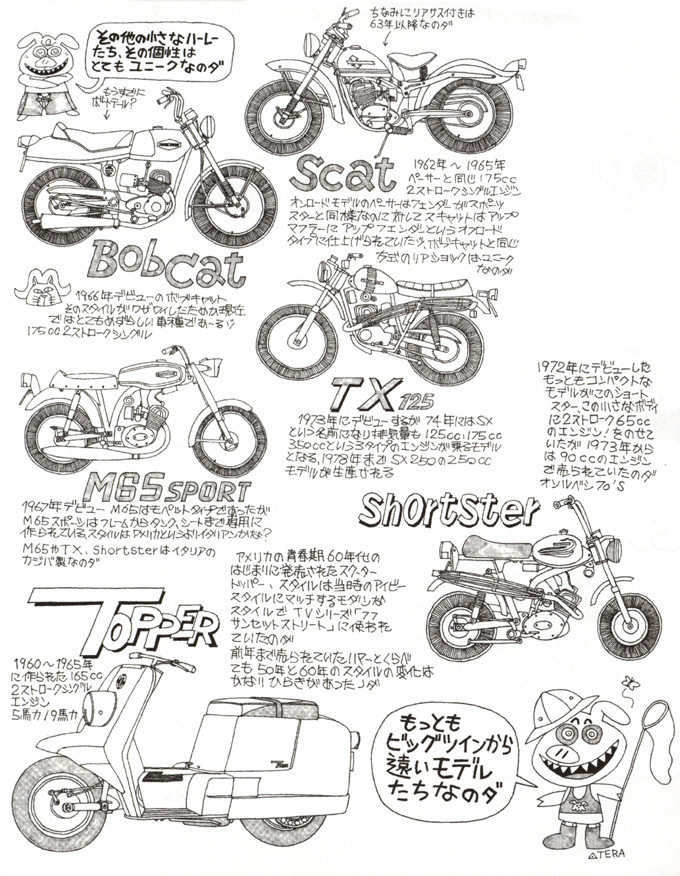 その他の小さなハーレー
たち、その個性は
とてもユニークなのダ
ちなみにリアサス付きは
63年以降なのダ
もうすでに
ボートテール?
Scat
1962年〜1965年
ペーサーと同じ175cc
2ストロークシングルエンジン
オンロードモデルのペーサーはフェンダーがスポーツ
スターと同様なのに対してスキャットはアップ
マフラーにアップフェンダーというオフロード
タイプに仕上げられていた。ボブキャットと同じ
方式のリアショックはユニーク
なのダ
BobCat
1966年デビューのボブキャット
そのスタイルがワザワイしたためか現在
ではとてもめずらしい車種であ〜る
175cc2ストロークシングル
TX125
1973年にデビューするが74年にはSX
という名前になり排気量も125cc・175cc
350ccという3タイプのエンジンが乗るモデル
となる。1978年までSX250の250cc
モデルが生産される
1972年にデビューした
もっともコンパクトな
モデルがこのショート
スター、この小さなボディ
に2ストローク65cc
のエンジン!をのせて
いたが1973年から
は90ccのエンジン
で売られていたのダ
オソルベシ70'S
M65SPORT
1967年デビュー M65はモペットタイプであったが
M65スポーツはフレームからタンク、シートまで専用に
作られている。スタイルはアメリカというよりイタリアンかな?
M65やTX、Shortsterはイタリアの
カジバ製なのダ
Shortster
アメリカの青春期60年代の
はじまりに発売されたスクーター
トッパー、スタイルは当時のアイビー
スタイルにマッチするモダンな
スタイルでTVシリーズ「77
サンセットストリート」に使われ
ていたのダ
前年まで売られていたハマーとくらべ
ても50年と60年のスタイルの変化は
かなりひらきがあったノダ
TOPPER
1960〜1965年
に作られた165cc
2ストロークシングル
エンジン
5馬力/9馬力
もっとも
ビッグツインから
遠いモデル
たちなのダ
△TERA